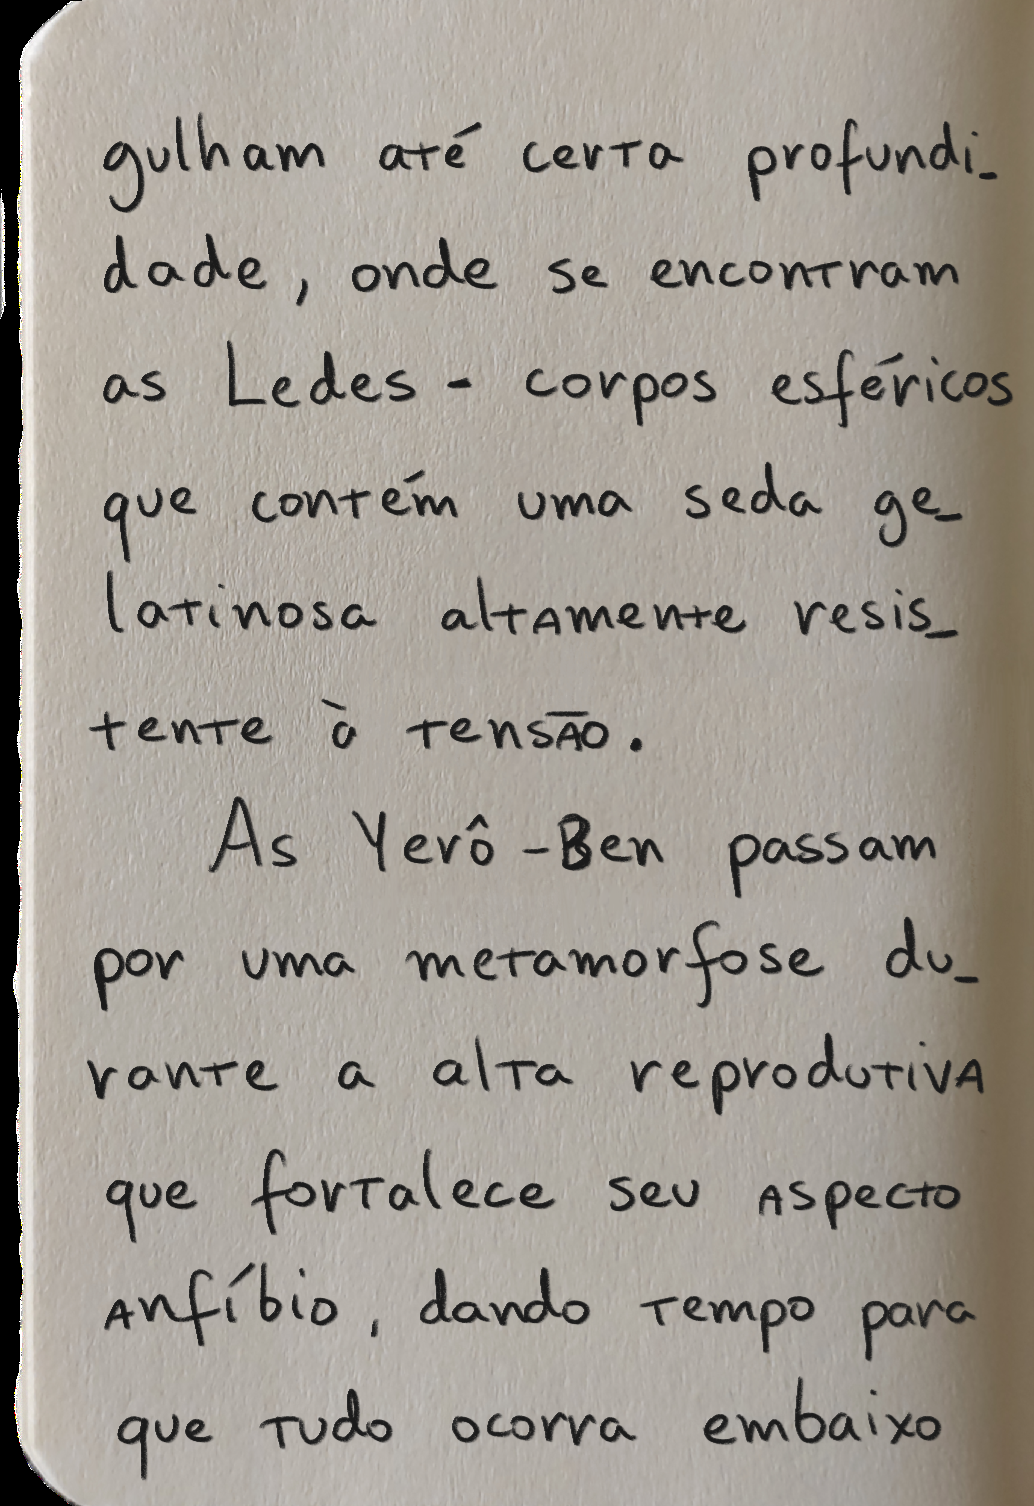 gulham até certa profundi_
dade, onde se encontram
as Ledes - corpos esféricos
que contém uma seda ge_
latinosa altamente resis_
tente à tensão.
As Yerô-Ben passam
por uma metamorfose du_
rante a alta reprodutiva
que fortalece seu aspecto
anfíbio, dando tempo para
que tudo ocorra embaixo